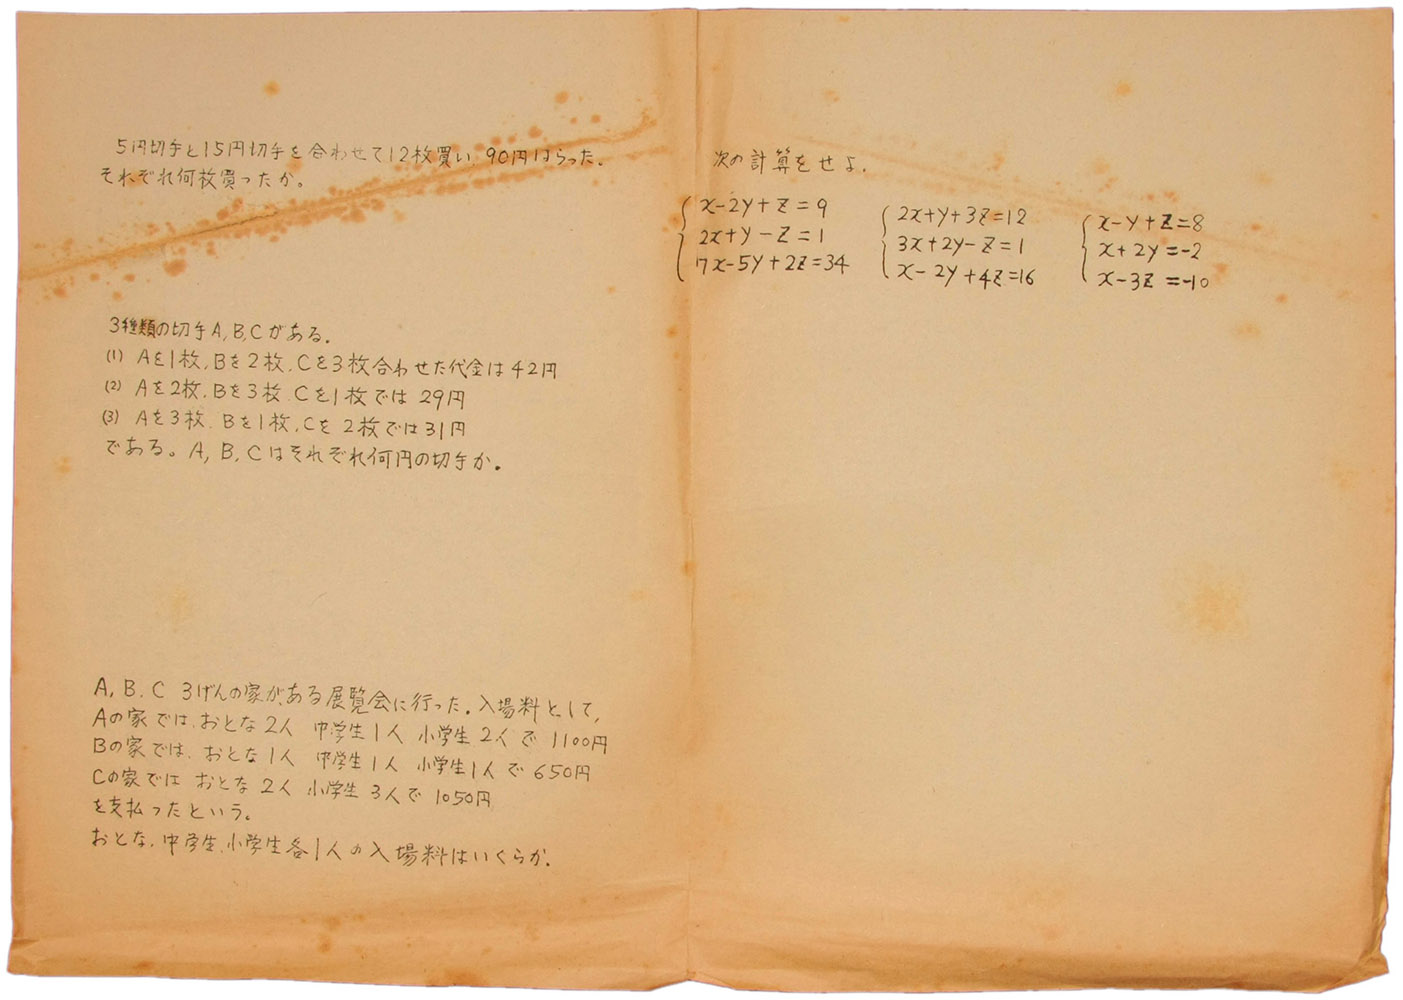 5円切手と15円切手を合わせて12枚買い、90円はらった。
それぞれ何枚買ったか。
3種類の切手A,B,Cがある.
(1) Aを1枚,Bを2枚,Cを3枚合わせた代金は42円
(2) Aを2枚,Bを3枚,Cを1枚では29円
(3) Aを3枚,Bを1枚,Cを2枚では31円
である。A,B,Cはそれぞれ何円の切手か.
A,B,C 3げんの家がある展覧会に行った.入場料として,
Aの家では,おとな2人 中学生1人 小学生2人で1100円
Bの家では,おとな1人 中学生1人 小学生1人で650円
Cの家では おとな2人 小学生3人で1050円
を支払ったという。
おとな,中学生,小学生各1人の入場料はいくらか.
次の計算をせよ.
x-2y+z=9
2x+y-z=1
7x-5y+2z=34
2x+y+3z=12
3x+2y-z=1
x-2y+4z=16
x-y+z=8
x+2y=-2
x-3z=-10